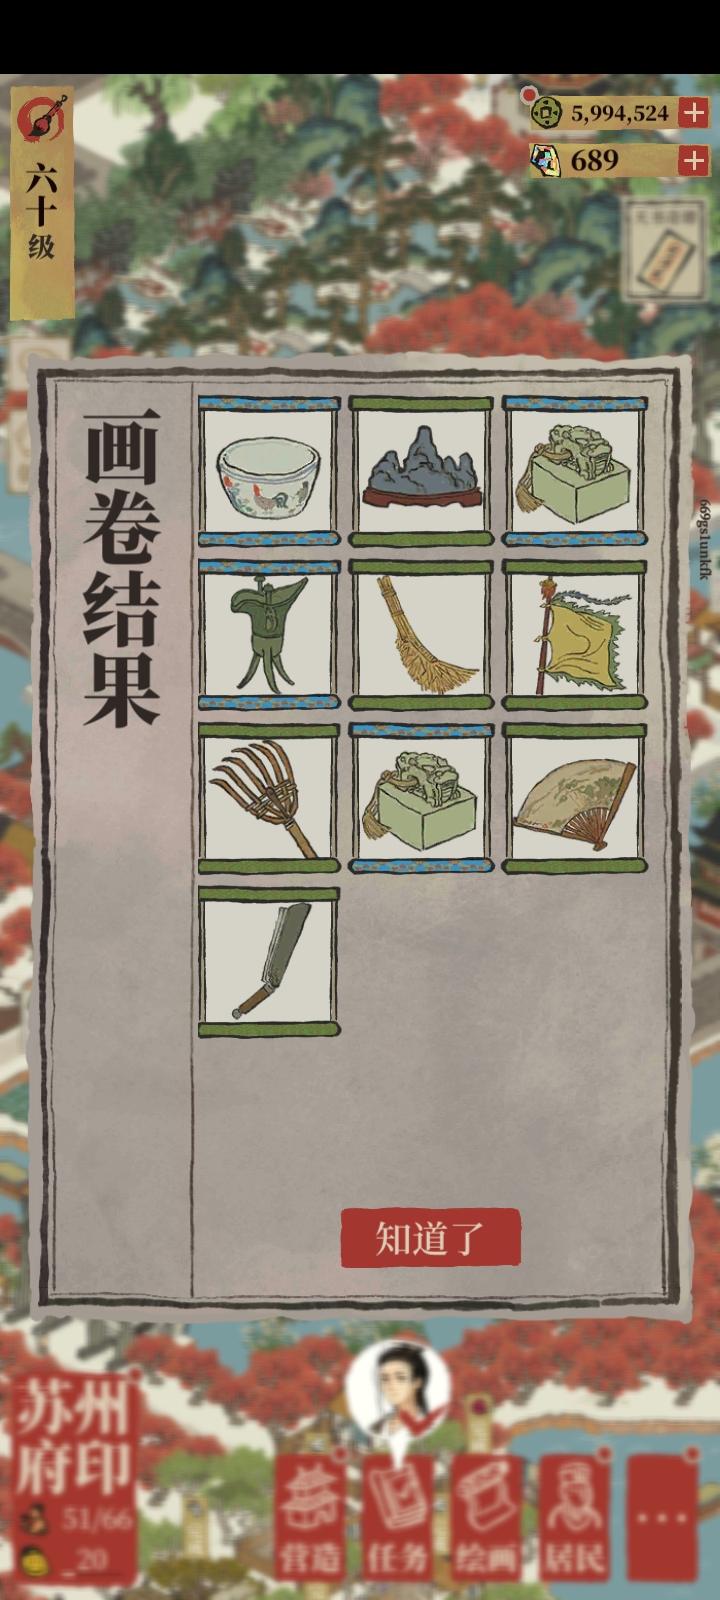 六十级
5,994,524
689
画卷结果
669gs1unkfk
知道了
苏州
府印
51/66
20
营造
任务
绘画
居民